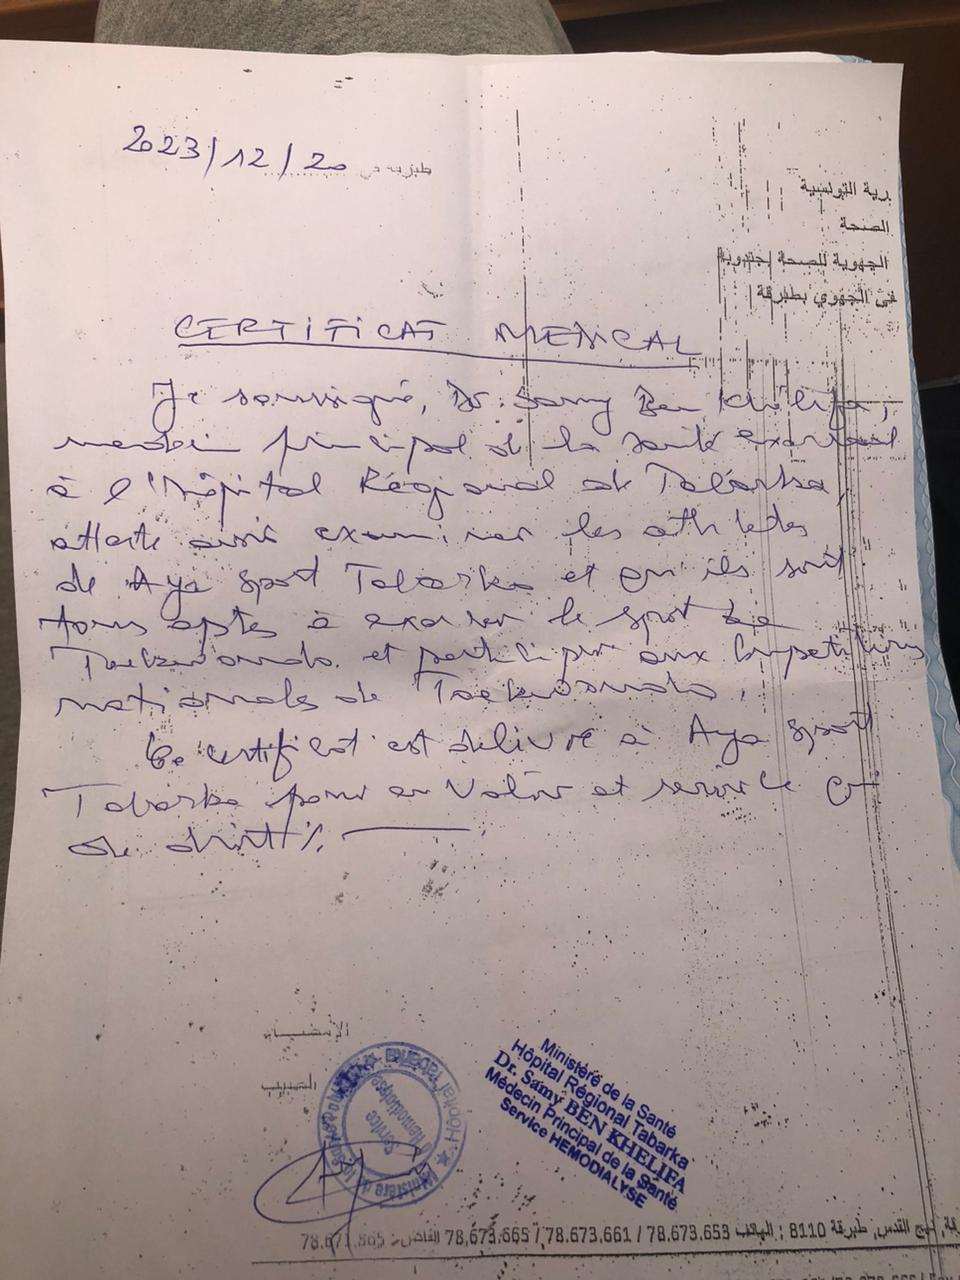 2023/12/20
طبرقة في
رية التونسية
الصحة
الجهوية للصحة بجندوبة
فى الجهوي بطبرقة
CERTIFICAT MEDICAL
Je soussigné, Dr. Samy Ben Khelifa,
medecin principal de la santé exerçant
à l'Hôpital Régional de Tabarka,
atteste avoir examiner les athletes
de Aya sport Tabarka et qu'ils sont
tous aptes à exercer le sport de
Taekwondo et participer aux compétitions
nationales de Taekwondo.
Ce certificat est délivré à Aya sport
Tabarka pour en valoir et servir ce
de droit %
الإمضاء
الطبيب
Hôpital Tabarka
Ministère de la
Service
d'Hémodialyse
Ministére de la Santé
Hôpital Régional Tabarka
Dr. Samy BEN KHELIFA
Médecin Principal de la Santé
Service HEMODIALYSE
نهج القدس, طبرقة 8110 ; الهاتف 78.673.653 / 78.673.661 / 78.673.665 الفاكس: 78.671.865